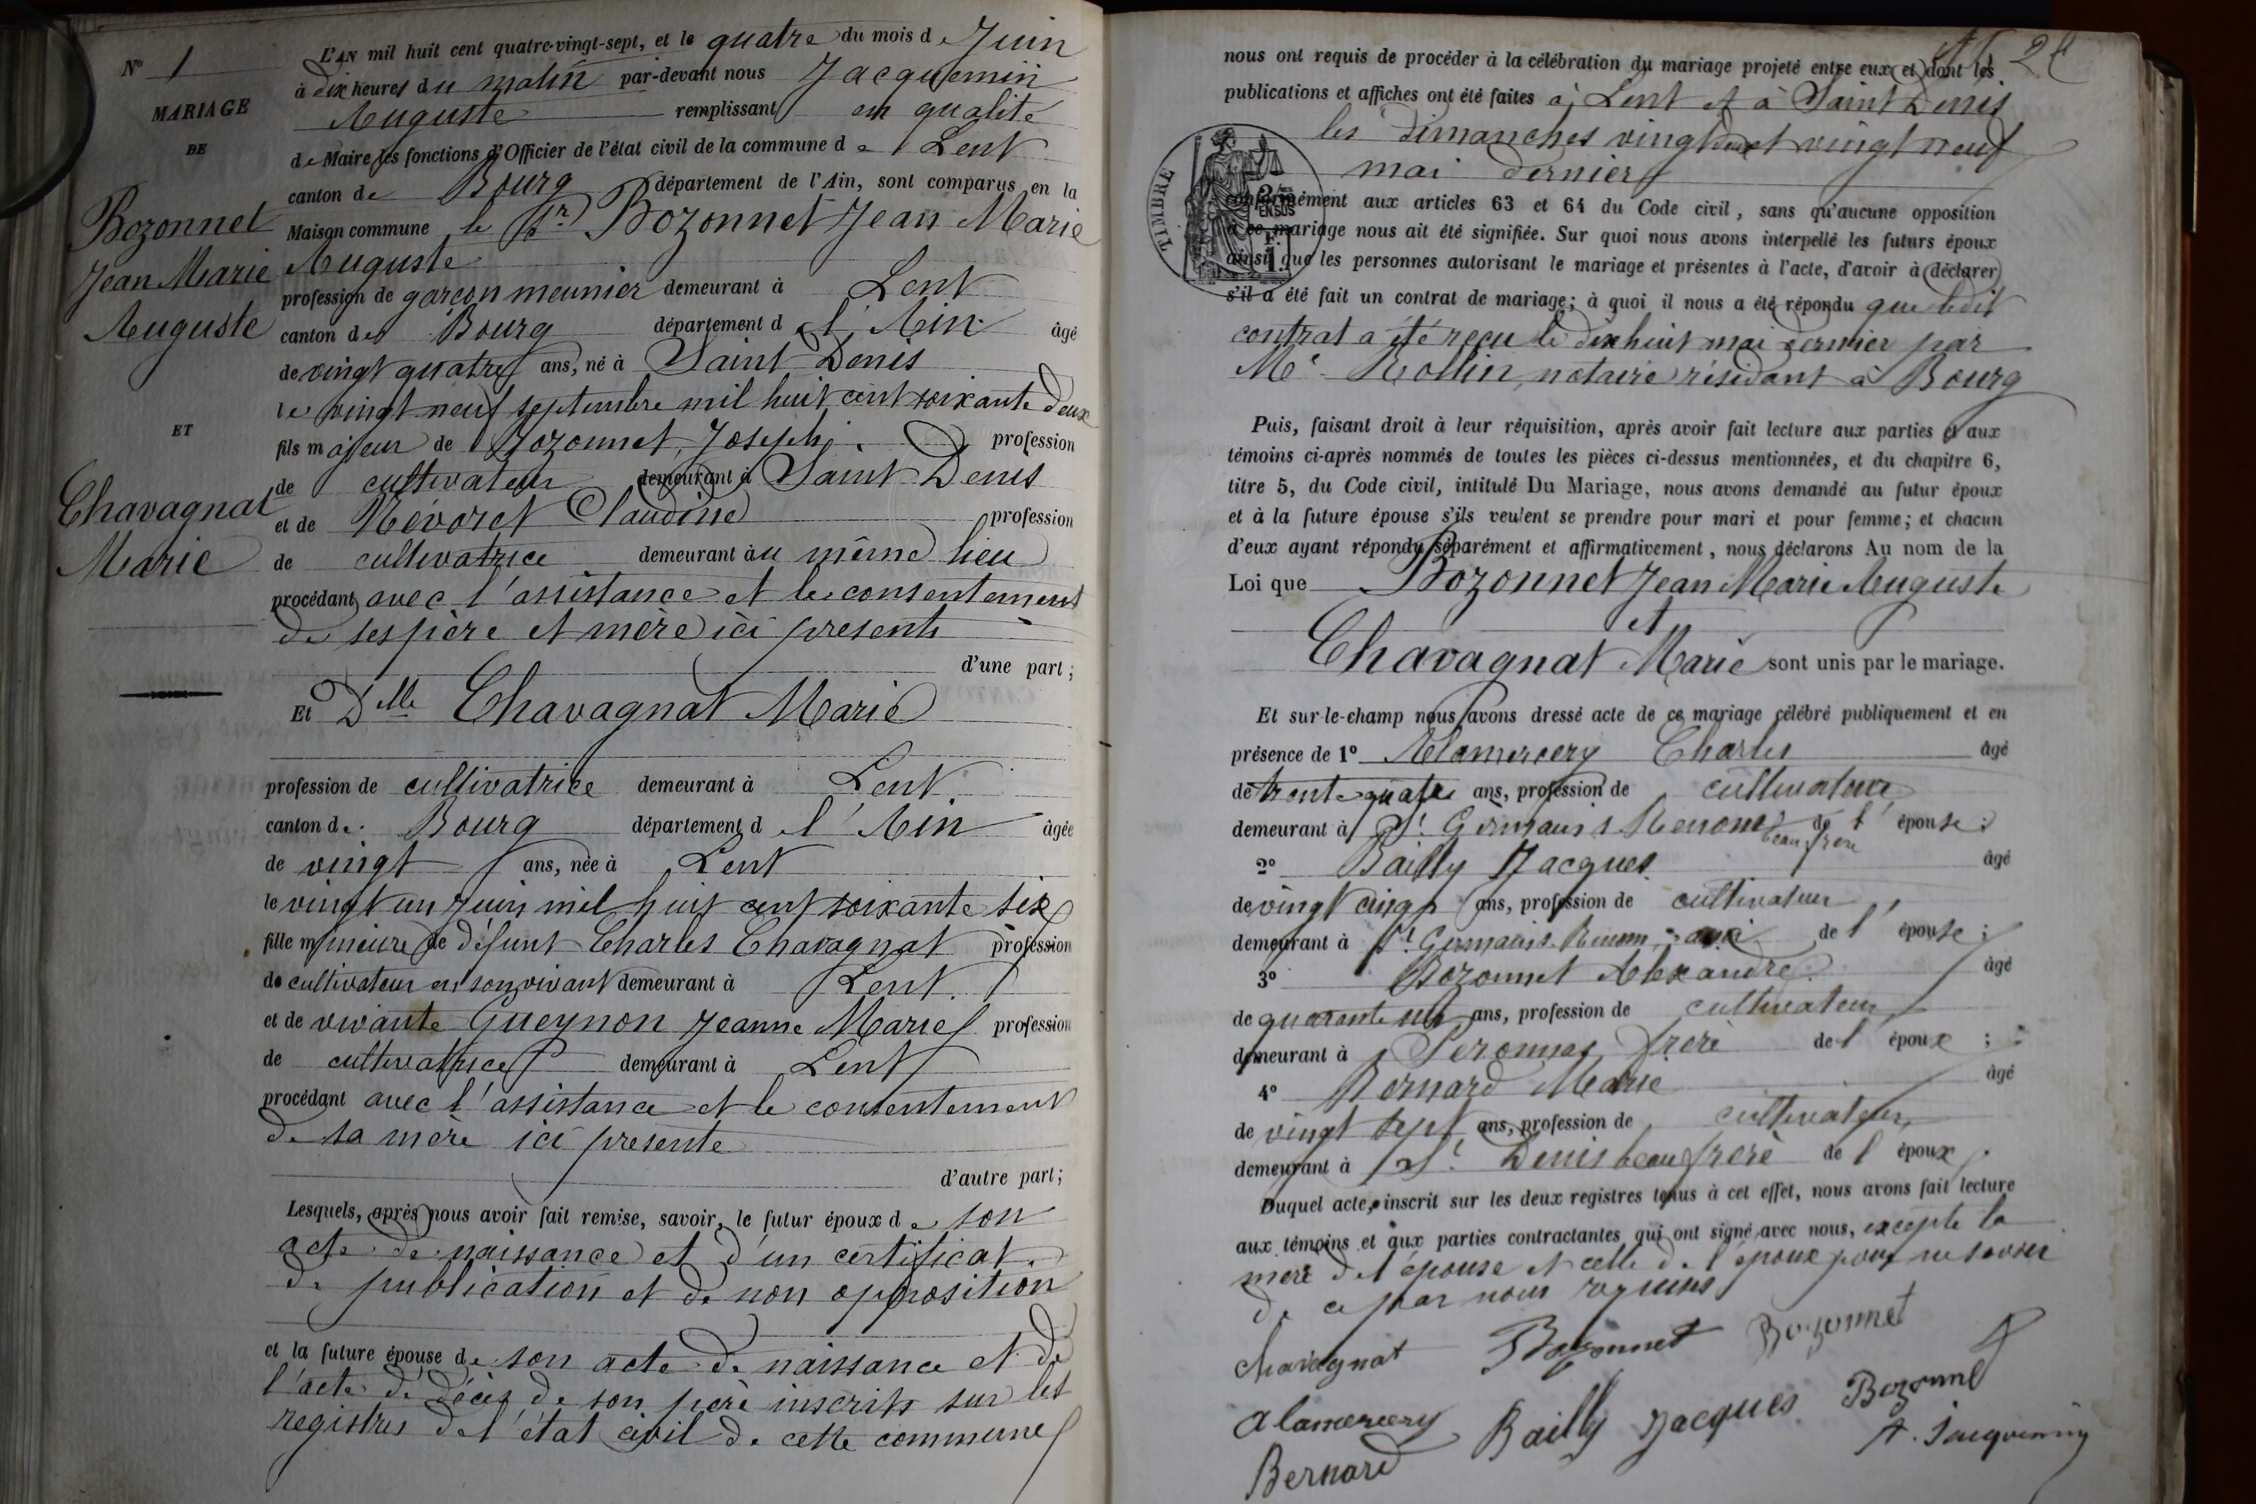 N° 1
MARIAGE
DE
Bozonnet
Jean Marie
Auguste
ET
Chavagnat
Marie
L'AN mil huit cent quatre-vingt-sept, et le quatre du mois de Juin
à dix heures du matin par-devant nous Jacquemin
Auguste remplissant en qualité
de Maire les fonctions d'Officier de l'état civil de la commune de Lent
canton de Bourg département de l'Ain, sont comparus en la
Maison commune le Sr Bozonnet Jean Marie
Auguste
profession de garçon meunier demeurant à Lent
canton de Bourg département de l'Ain âgé
de vingt quatre ans, né à Saint Denis
le vingt neuf septembre mil huit cent soixante deux
fils majeur de Bozonnet Joseph profession
de cultivateur demeurant à Saint Denis
et de Névoret Claudine profession
de cultivatrice demeurant au même lieu
procédant avec l'assistance et le consentement
de ses père et mère ici présents
d'une part ;
Et Dlle Chavagnat Marie
profession de cultivatrice demeurant à Lent
canton de Bourg département de l'Ain âgée
de vingt ans, née à Lent
le vingt un Juin mil huit cent soixante six
fille mineure de défunt Charles Chavagnat profession
de cultivateur en son vivant demeurant à Lent
et de vivante Gueynon Jeanne Marie profession
de cultivatrice demeurant à Lent
procédant avec l'assistance et le consentement
de sa mère ici présente
d'autre part ;
Lesquels, après nous avoir fait remise, savoir, le futur époux de son
acte de naissance et d'un certificat
de publication et de non opposition
et la future épouse de son acte de naissance et de
l'acte de décès de son père inscrits sur les
registres de l'état civil de cette commune
nous ont requis de procéder à la célébration du mariage projeté entre eux et dont les
publications et affiches ont été faites à Lent et à Saint Denis
les dimanches vingt deux et vingt neuf
mai dernier
TIMBRE
conformément aux articles 63 et 64 du Code civil, sans qu'aucune opposition
à ce mariage nous ait été signifiée. Sur quoi nous avons interpellé les futurs époux
ainsi que les personnes autorisant le mariage et présentes à l'acte, d'avoir à déclarer
s'il a été fait un contrat de mariage ; à quoi il nous a été répondu que ledit
contrat a été reçu le dix huit mai dernier par
Me Rollin, notaire résidant à Bourg
Puis, faisant droit à leur réquisition, après avoir fait lecture aux parties et aux
témoins ci-après nommés de toutes les pièces ci-dessus mentionnées, et du chapitre 6,
titre 5, du Code civil, intitulé Du Mariage, nous avons demandé au futur époux
et à la future épouse s'ils veulent se prendre pour mari et pour femme ; et chacun
d'eux ayant répondu séparément et affirmativement, nous déclarons Au nom de la
Loi que Bozonnet Jean Marie Auguste
et
Chavagnat Marie sont unis par le mariage.
Et sur-le-champ nous avons dressé acte de ce mariage célébré publiquement et en
présence de 1° Alamercery Charles âgé
de trente quatre ans, profession de cultivateur
demeurant à St Germain s Renom beau frère de l'épouse ;
2° Bailly Jacques âgé
de vingt cinq ans, profession de cultivateur
demeurant à St Germain s Renom ami de l'épouse ;
3° Bozonnet Alexandre âgé
de quarante un ans, profession de cultivateur
demeurant à Péronnas frère de l'époux ;
4° Bernard Marie âgé
de vingt sept ans, profession de cultivateur
demeurant à St Denis beau frère de l'époux
Duquel acte, inscrit sur les deux registres tenus à cet effet, nous avons fait lecture
aux témoins et aux parties contractantes qui ont signé avec nous, excepté la
mère de l'épouse et celle de l'époux pour ne savoir
de ce par nous requises
Chavagnat Bozonnet Bozonnet
Alamercery Bailly Jacques Bozonnet
Bernard A. Jacquemin